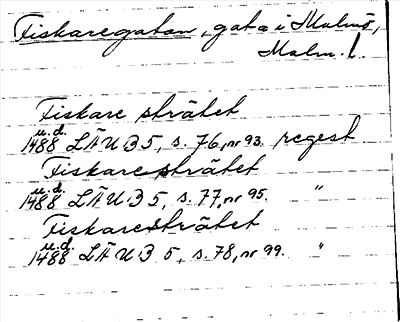 Fiskaregatan, gata i Malmö,
Malm. l.
Fiskare strätet
u.d.
1488 LÄUB 5, s. 76, nr 93. regest
Fiskaresträtet
u.d.
1488 LÄUB 5, s. 77, nr 95. "
Fiskaresträtet
u.d.
1488 LÄUB 5, s. 78, nr 99. "